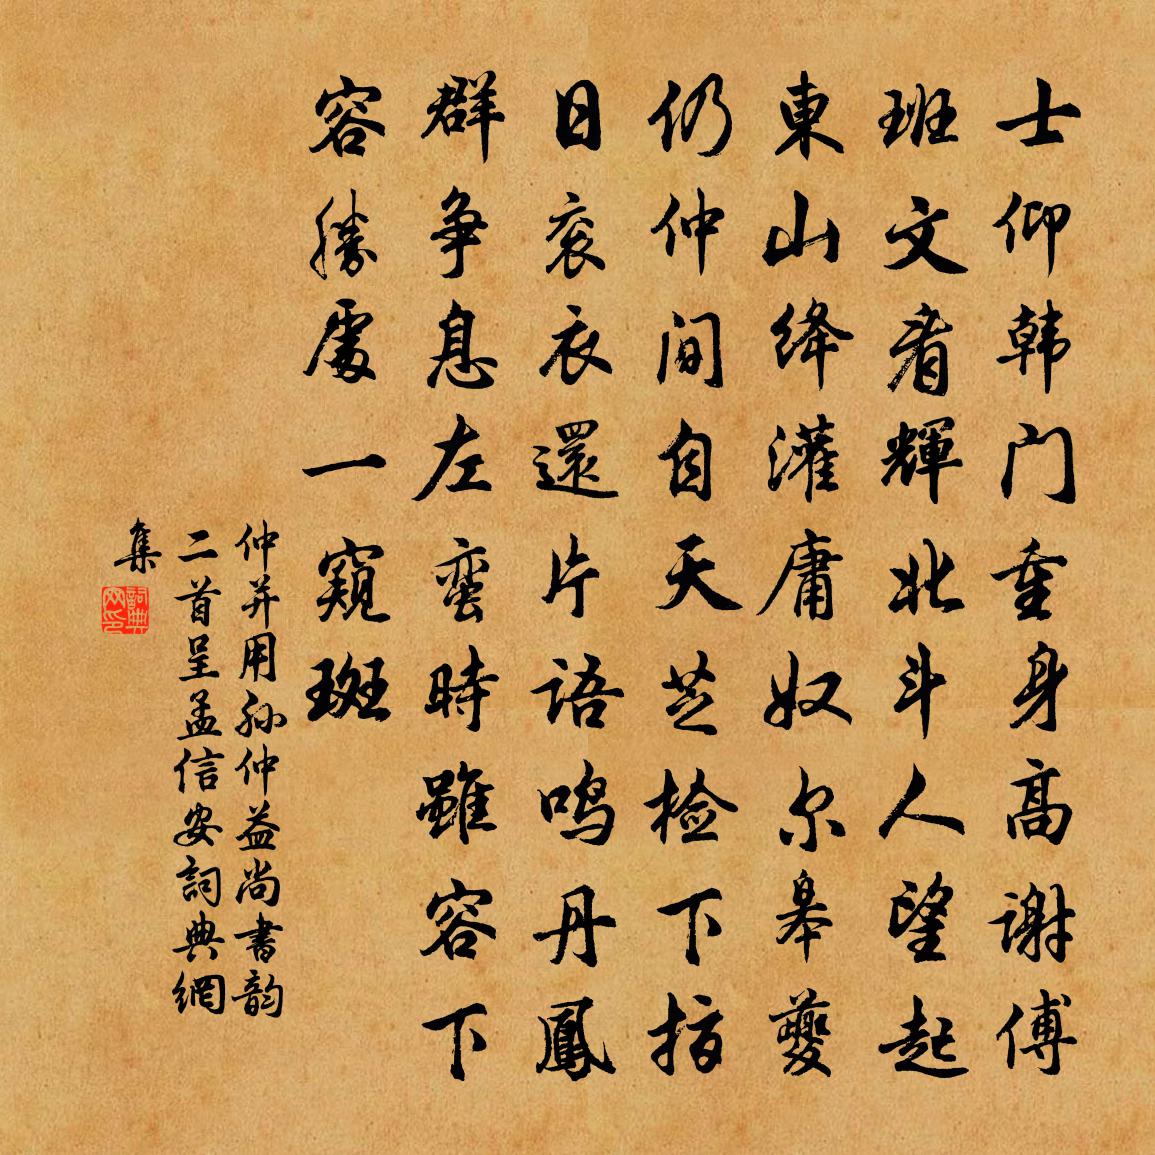 士仰韩门重身高谢傅
班文看輝北斗人望起
東山绛灌庸奴尔皋夔
仍仲间自天芝检下指
日衮衣還片语鸣丹鳳
群争息左蛮時雖容下
容勝處一窺斑
仲并用孙仲益尚書韵
二首呈孟信安詞典網
集
詞典网印